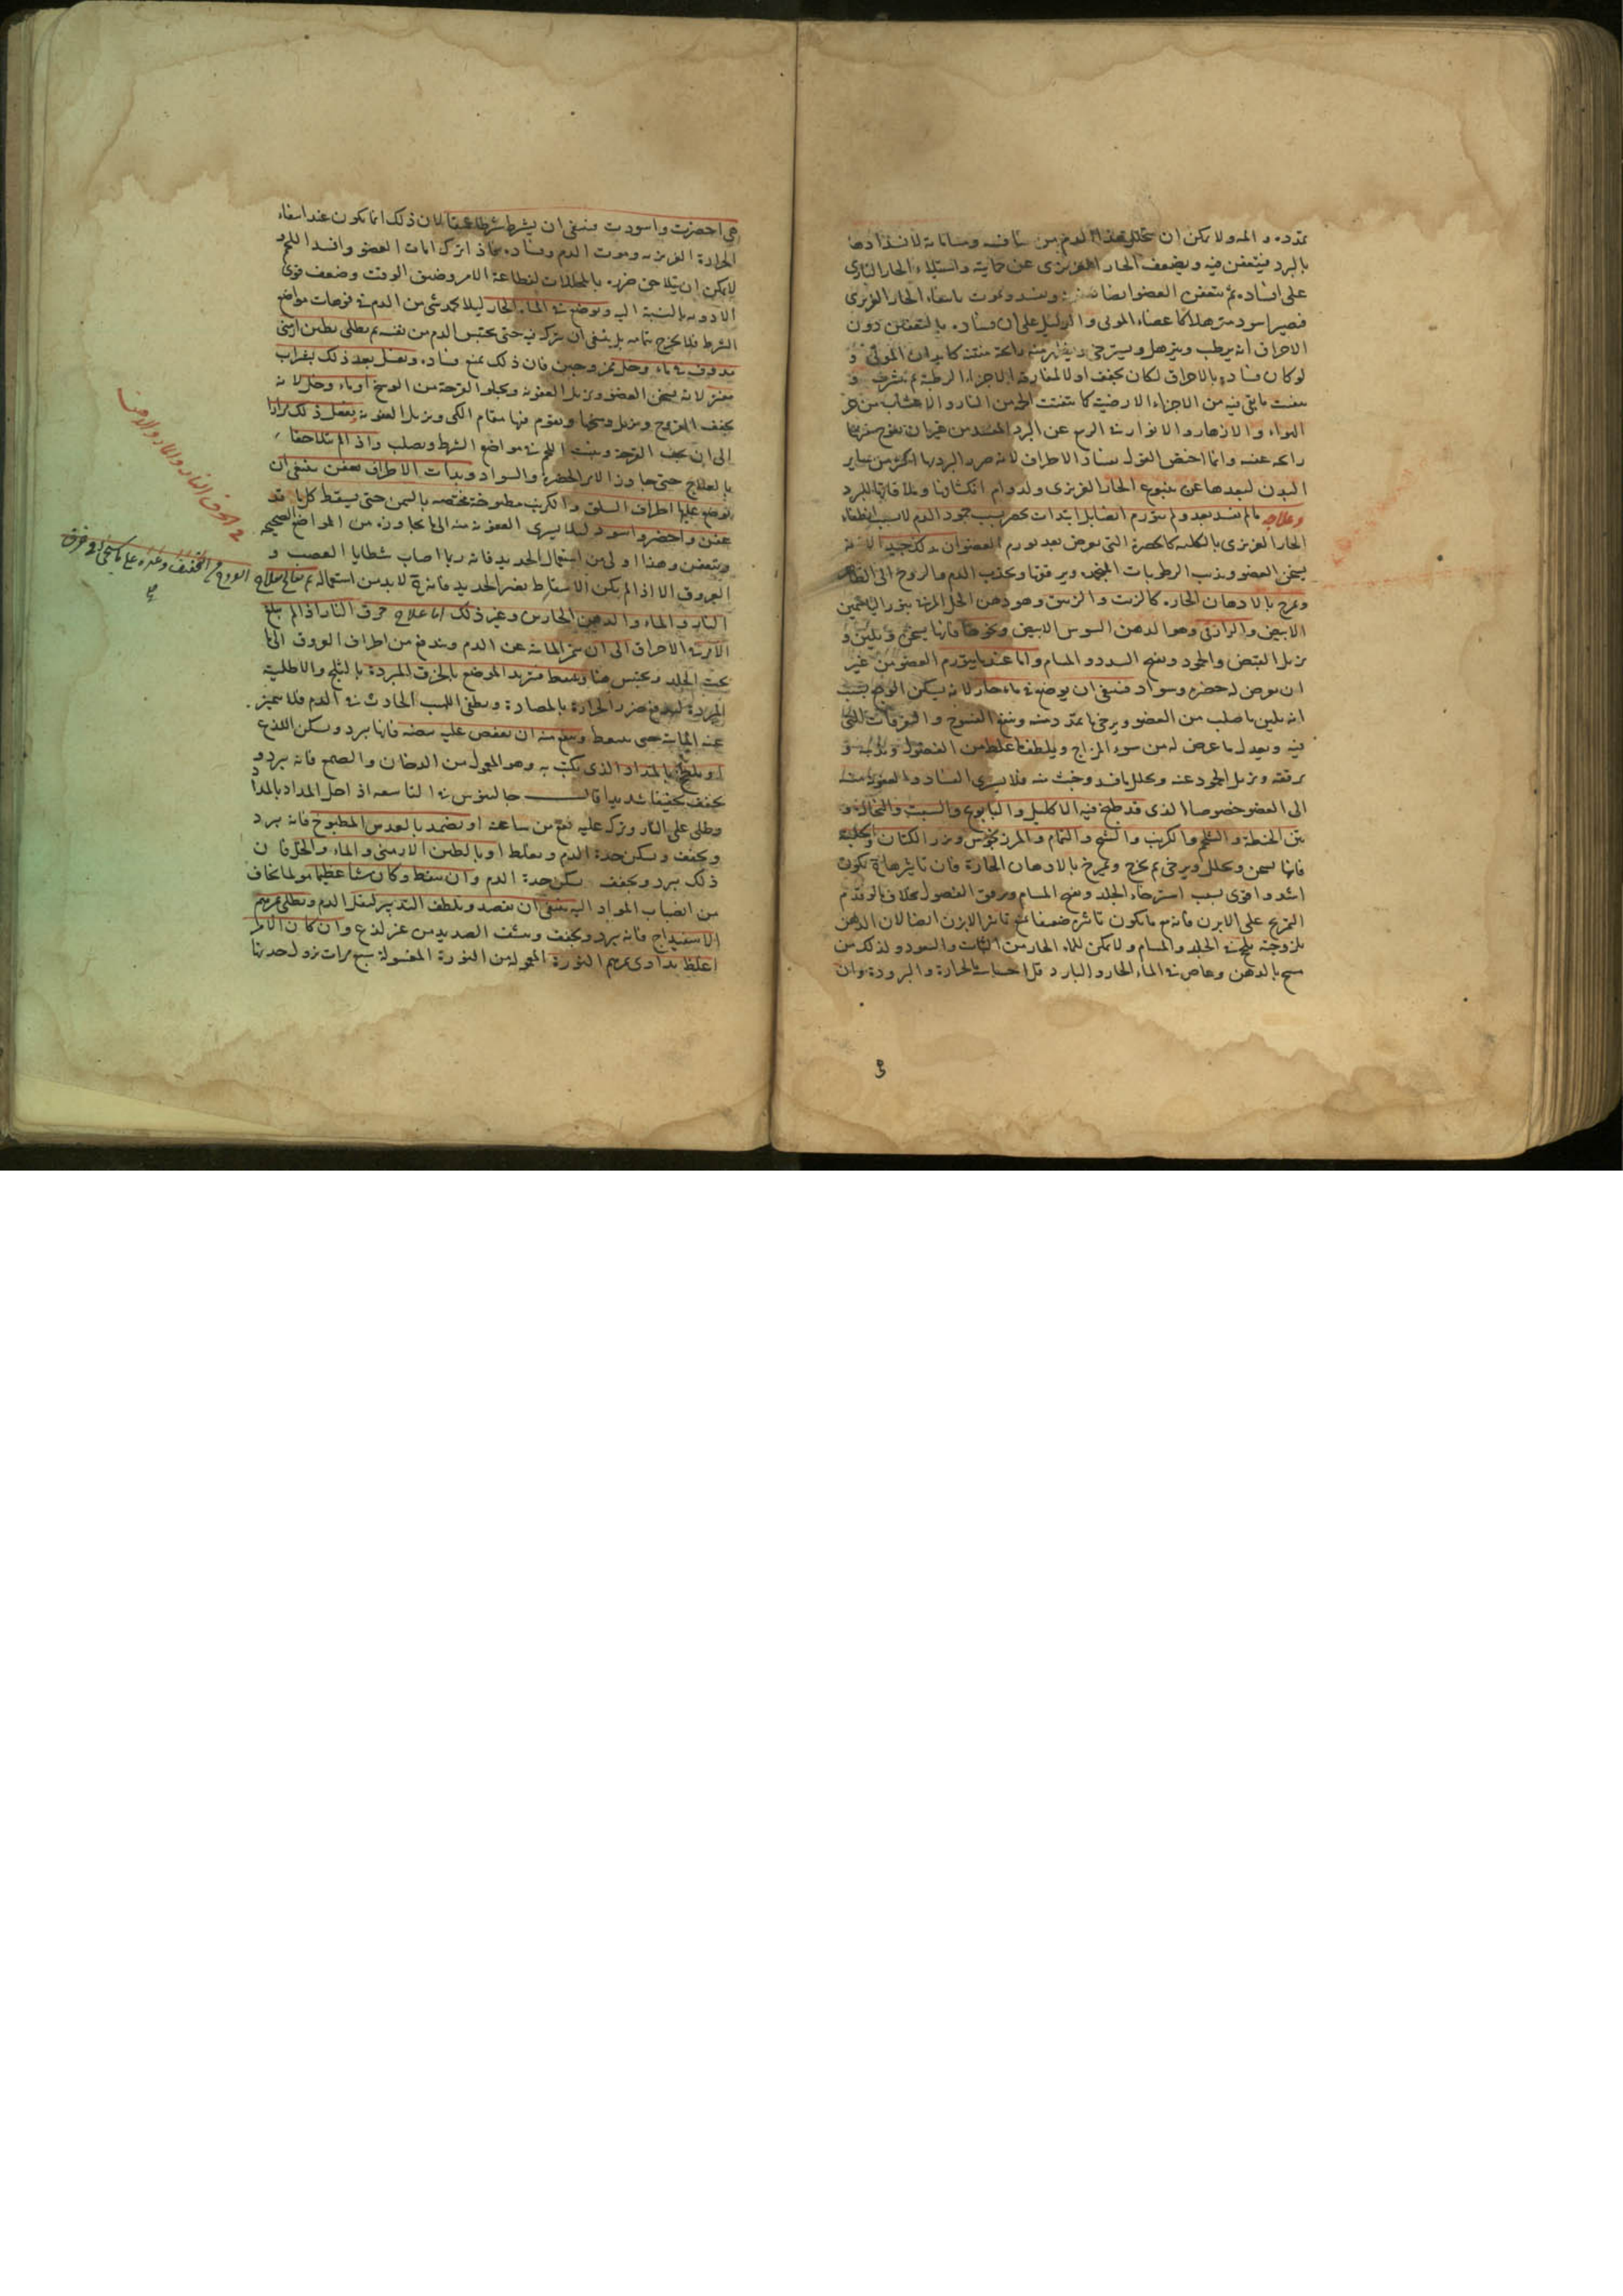 تمدده و المه ولا يمكن ان يتحلل هذا الدم من منافسه ومساماته لانسدادها
بالبرد فيتعفن فيه ويضعف الحار الغريزى عن حمايته واستيلاء الحار النارى
على افساده ثم يتعفن العضو ايضا ويفسد ويموت بانطفاء الحار الغريزى
فيصير اسود مترهلا كاعضاء الموتى والدليل على ان فساده بالتعفن دون
الاحراق انه يرطب ويترهل ويسترخى ويظهر منه رائحة منتنة كابدان الموتى و
لو كان فساده بالاحراق لكان يجفف اولا لمفارقة الاجزاء الرطبة ثم
يتفتت ما بقى فيه من الاجزاء الارضية كما يتفتت الخبز من النار و الاعشاب من حر
الهواء و الازهار و الانوار فى الربيع عن البرد المفسد من غير ان يفوح منها
رائحة عفنة وانما اختص القول بفساد الاطراف لان ضرر البرد بها اكثر من ساير
البدن لبعدها عن ينبوع الحار الغريزى ولدوام انكشافها وملاقاتها للبرد
وعلاجه ما لم يفسد بعد ولم يتورم ايضا بل ابتدات تخضر بسبب جمود الدم لا بسبب انطفاء
الحار الغريزى بالكلية كالخضرة التى تعرض بعد تورم العضو ان يدلك جيدا لانه
يسخن العضو ويذيب الرطوبات المنجمدة ويرققها ويجذب الدم والروح الى الظاهر
ويمرخ بالادهان الحارة كالزيت والزنبق وهو دهن الحل المربى بنور الياسمين
الابيض والرازقى وهو الدهن السوسن الابيض ونحوها فانها يسخن ويلين و
يزيل القبض والجمود ويفتح السدد و المسام واما عندما يتورم العضو من غير
ان يعرض له خضرة وسواد فينبغى ان يوضع فى ماء حار لانه يسكن الوجع بسبب
انه يلين ما صلب من العضو ويرخى ما تمدد منه
فيه ويعدل ما عرض له من سوء المزاج ويلطف ما غلظ من الفضول ويذيبه و
يرققه ويزيل الجمود عنه ويحلل ما فسد وخبث منه فلا يسرى الفساد والعفونة منه
الى العضو خصوصا الذى قد طبخ فيه الاكليل والبابونج والشبت والنخالة و
تبن الحنطة و الشلجم والكرنب والشيح و النمام والمرزنجوش وبزر الكتان والحلبة
فانها يسخن ويحلل ويرخى ثم يخرج ويمرخ بالادهان الحارة فان تاثيرها حينئذ يكون
اشد و اقوى بسبب استرخاء الجلد وتفتح المسام ورقة الفضول بخلاف ما لو قدم
التمريخ على الابزن فانه مع ما يكون تاثيره ضعيفا يمنع تاثير الابزن ايضا لان الدهن
بلزوجته يلحج فى الجلد والمسام ولا يمكن للماء الحار من الثبات والنفوذ ولذلك من
مسح بالدهن وغاص فى الماء الحار والبارد قل احساسه بالحرارة والبرودة وان
هى اخضرت واسودت فينبغى ان يشرط شرطا عميقا لان ذلك انما يكون عند انطفاء
الحرارة الغريزية وموت الدم وفساده فاذا ترك امات العضو وافسد اللحم
لا يمكن ان يتلاحق ضرره بالمحللات لفظاعة الامر وضيق الوقت وضعف قوى
الادوية بالنسبة اليه ويوضع فى الماء الحار ليلا يجمد شى من الدم فى فوهات مواضع
الشرط فلا يخرج تمامه بل ينبغى ان يترك فيه حتى يحتبس الدم من نفسه ثم يطلى بطين ارمنى
مدوف فى ماء وخل ممزوجين فان ذلك يمنع فساده ويغسل بعد ذلك بشراب
لانه يسخن العضو ويزيل العفونة ويجلو القرحة من الوسخ او بماء وخل لانه
يجفف القروح ويزيل وسخها ويقوم فيها مقام الكى ويزيل العفونة يفعل ذلك مرارا
الى ان يجف القرحة وينبت اللحم فى مواضع الشرط ويصلب واذا لم يتلاحق
بالعلاج حتى جاوز الامر الخضرة والسواد وبدات الاطراف تعفن ينبغى ان
يوضع عليها اطراف السلق و الكرنب مطبوخة مختصة بالسمن حتى يسقط كل ما قد
عفن واخضر واسود ليلا يسرى العفونة منه الى ما يجاوره من المواضع الصحيحة
ويتعفن وهذا اولى من استعمال الحديد فانه ربما اصاب شظايا العصب و
العروق الا اذا لم يكن الاسقاط بغير الحديد فانه حينئذ لابد من استعماله ثم يعالج علاج القروح من التجفيف وغيره على ما يجئ فى
النار و الماء و الدهن الحارين وغير ذلك اما علاج حرق النار اذا لم يبلغ
الامر فى الاحراق الى ان يتميز المائية عن الدم ويندفع من اطراف العروق الى ما
تحت الجلد ويحتبس هناك وينفط فتبريد الموضع بالخرق المبردة بالثلج والاطلية
المبردة ليدفع ضرر الحرارة بالمضادة ويطفى اللهيب الحادث فى الدم فلا يتميز
عنه المائية حتى ينفط وينفع منه ان يفقص عليه بيضة فانها يبرد ويسكن اللذع
او يلطخ بالمداد الذى يكتب به وهو المعمول من الدخان و الصمغ فانه يبرد و
يجفف تجفيفا شديدا قال جالينوس فى التاسعة اذا حل المداد بالماء
وطلى على النار وترك عليه نفع من ساعته او يضمد بالعدس المطبوخ فانه يبرد
ويجفف ويسكن حدة الدم او بالطين الارمنى و الماء والخل فان
ذلك يبرد ويجفف ويسكن حدة الدم وان تنفط وكان شيئا عظيما هولا يخاف
من انصباب المواد اليه ينبغى ان يفصد ويلطف التدبير ليقل الدم ويطلى بمرهم
الاسفيداج فانه يبرد ويجفف وينشف الصديد من غير لذع وان كان الامر
اغلظ يداوى بمرهم النورة المعمولة من النورة المغسولة سبع مرات تزول حدتها
حرق النار والماء والادهان